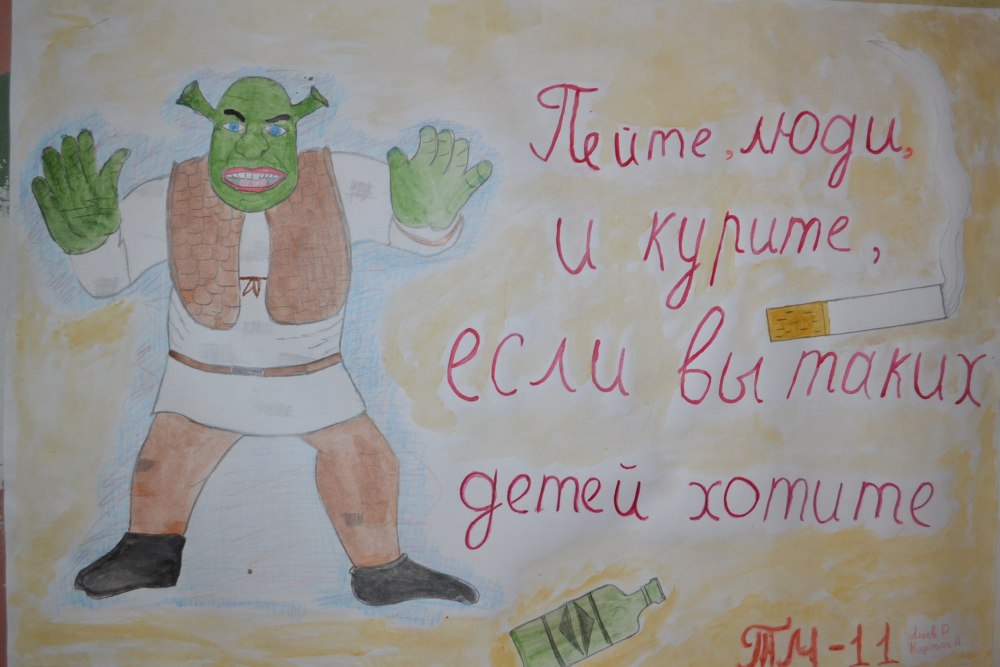 Пейте, люди,
и курите,
если вы таких
детей хотите
ТМ-11